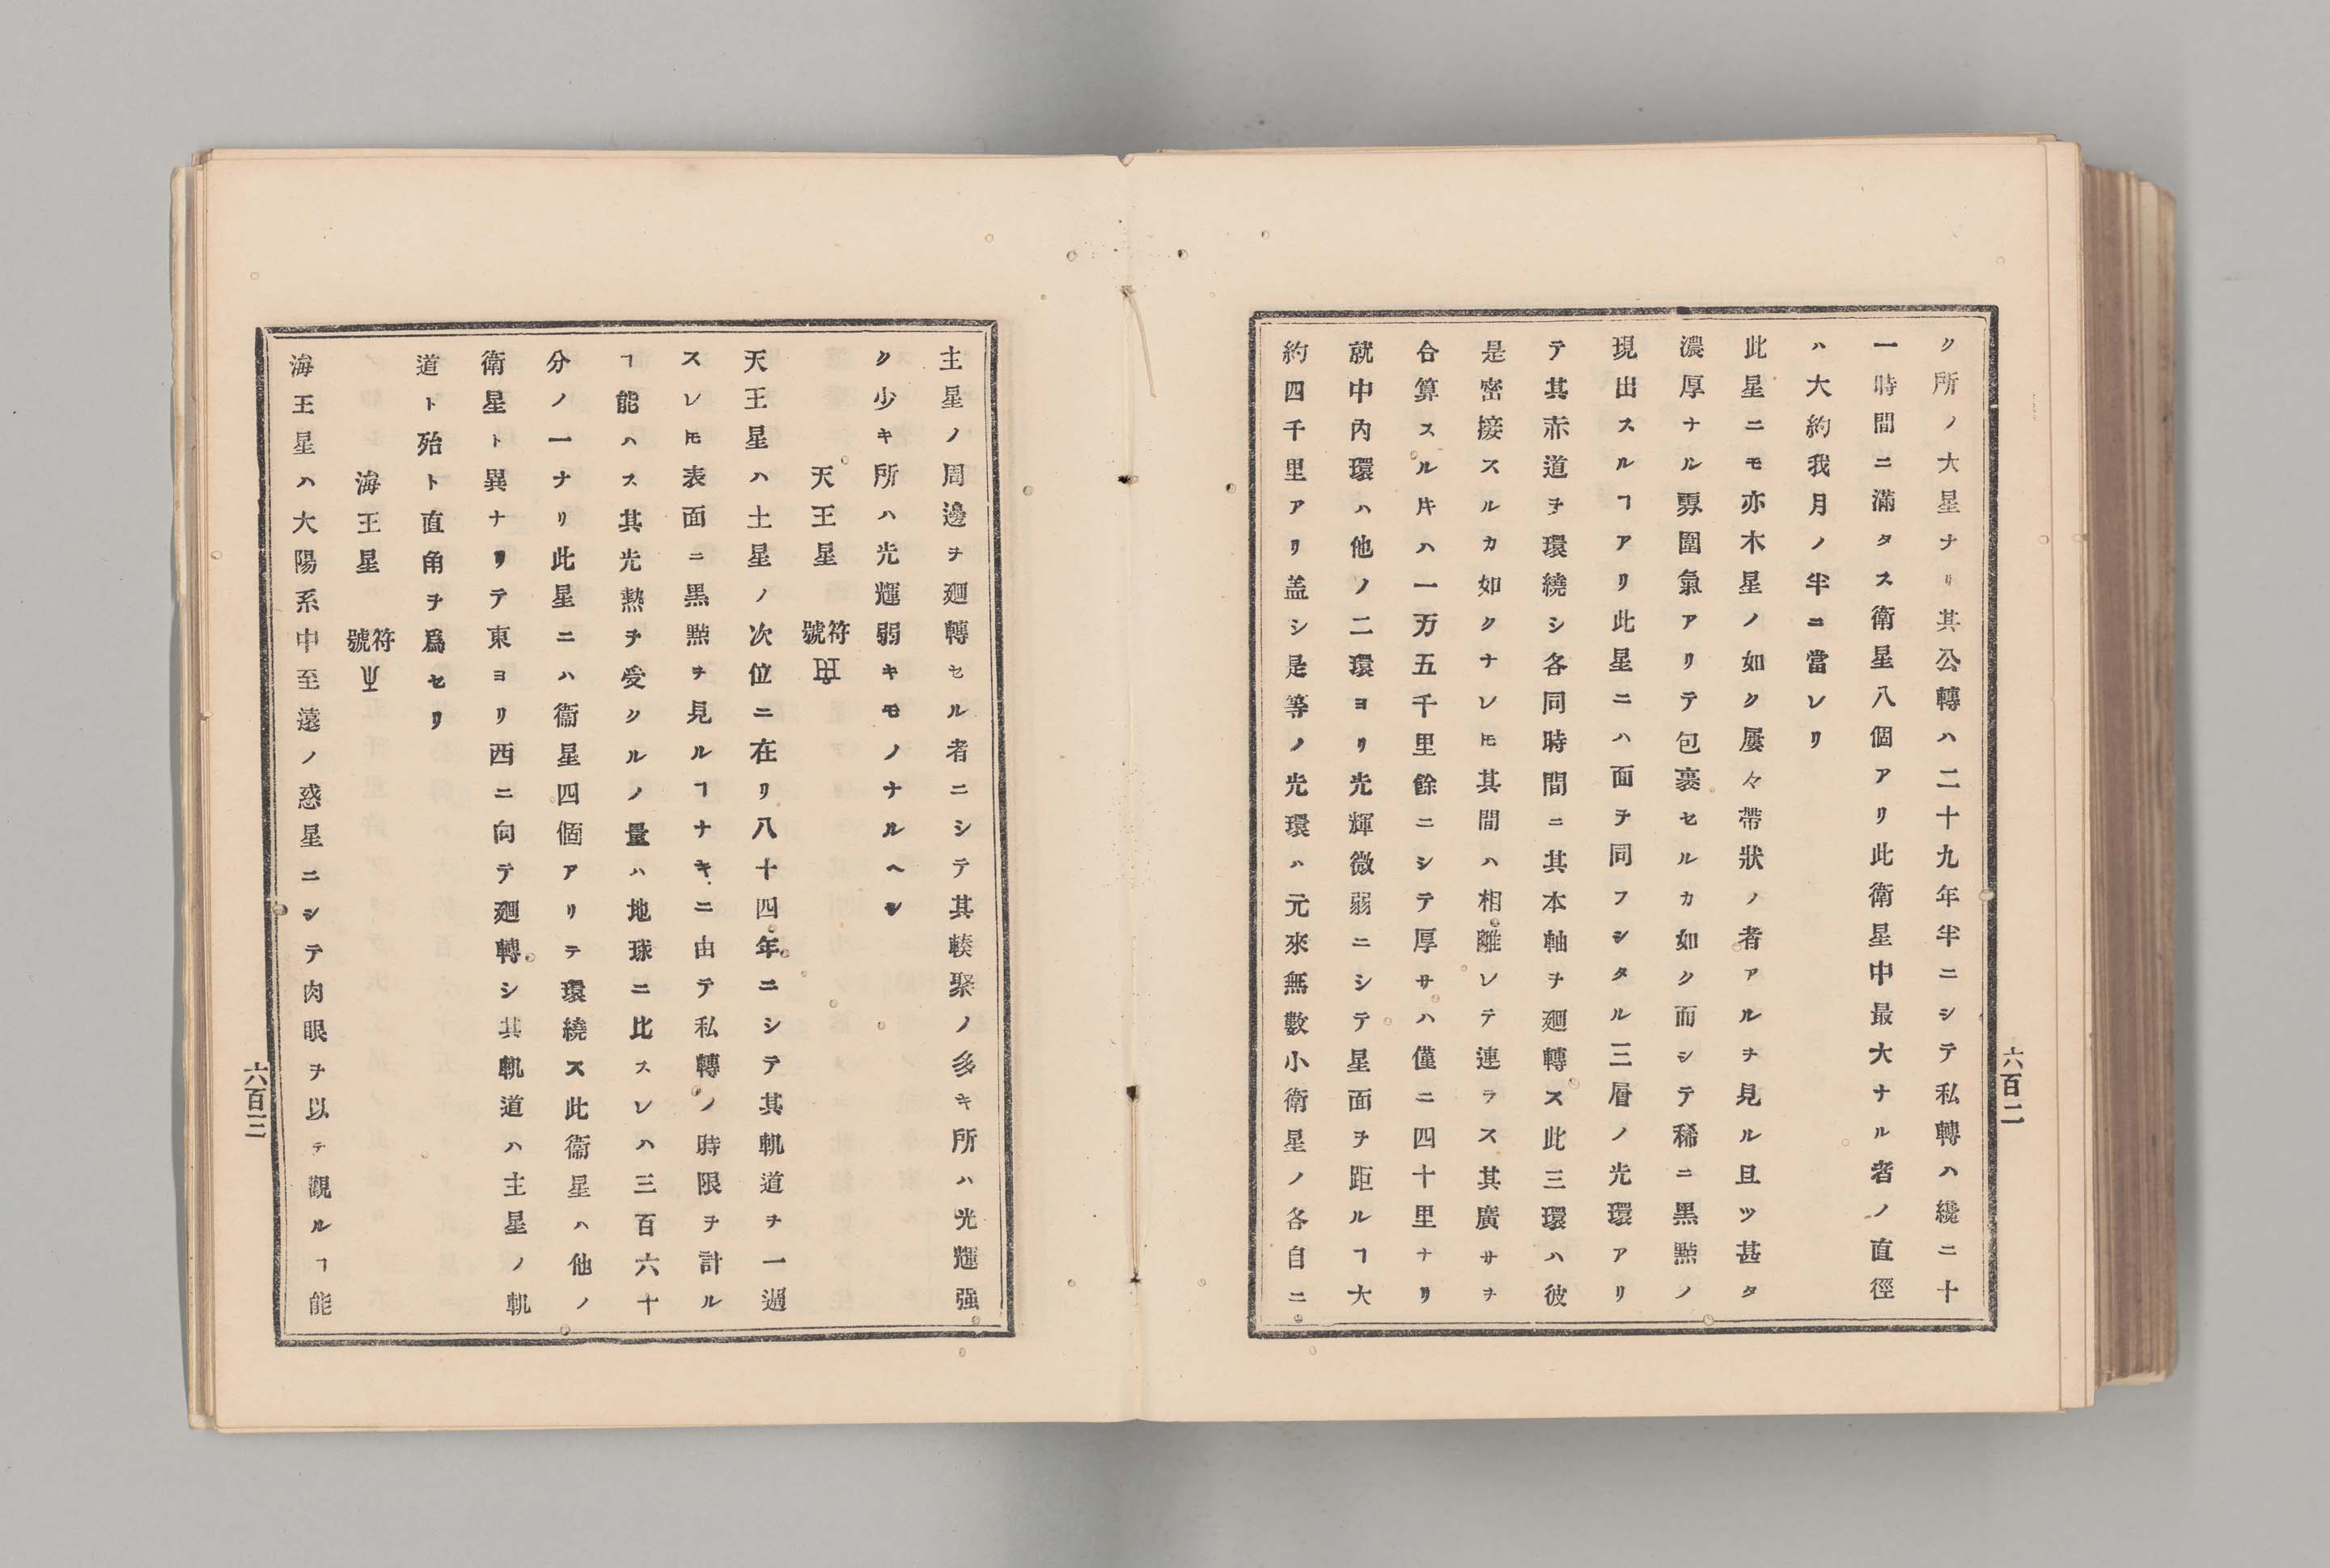 ク所ノ大星ナリ其公轉ハ二十九年半ニシテ私轉ハ纔ニ十
一時間ニ滿タス衛星八個アリ此衛星中最大ナル者ノ直徑
ハ大約我月ノ半ニ當レリ
此星ニモ亦木星ノ如ク屡々帶狀ノ者アルヲ見ル且ツ甚タ
濃厚ナル雰圍氣アリテ包裹セルカ如ク而シテ稀ニ黑㸃ノ
現出スルヿアリ此星ニハ面ヲ同フシタル三層ノ光環アリ
テ其赤道ヲ環繞シ各同時間ニ其本軸ヲ廻轉ス此三環ハ彼
是密接スルカ如クナレ𪜈其間ハ相離レテ連ラス其廣サヲ
合算スル片ハ一万五千里餘ニシテ厚サハ僅ニ四十里ナリ
就中內環ハ他ノ二環ヨリ光輝微弱ニシテ星面ヲ距ルヿ大
約四千里アリ盖シ是等ノ光環ハ元來無數小衛星ノ各自ニ
六百二
主星ノ周邊ヲ廻轉セル者ニシテ其輳聚ノ多キ所ハ光輝强
ク少キ所ハ光輝弱キモノナルヘシ
天王星 符號 ♅
天王星ハ土星ノ次位ニ在リ八十四年ニシテ其軌道ヲ一過
スレ𪜈表面ニ黑㸃ヲ見ルヿナキニ由テ私轉ノ時限ヲ計ル
ヿ能ハス其光熱ヲ受クルノ量ハ地球ニ比スレハ三百六十
分ノ一ナリ此星ニハ衛星四個アリテ環繞ス此衛星ハ他ノ
衛星ト異ナリテ東ヨリ西ニ向テ廻轉シ其軌道ハ主星ノ軌
道ト殆ト直角ヲ爲セリ
海王星 符號 ♆
海王星ハ大陽系中至遠ノ惑星ニシテ肉眼ヲ以テ觀ルヿ能
六百三